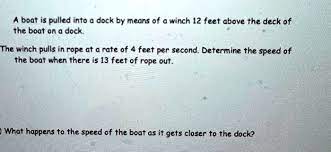 A boat is pulled into a dock by means of a winch 12 feet above the deck of
the boat on a dock.
The winch pulls in rope at a rate of 4 feet per second. Determine the speed of
the boat when there is 13 feet of rope out.
) What happens to the speed of the boat as it gets closer to the dock?